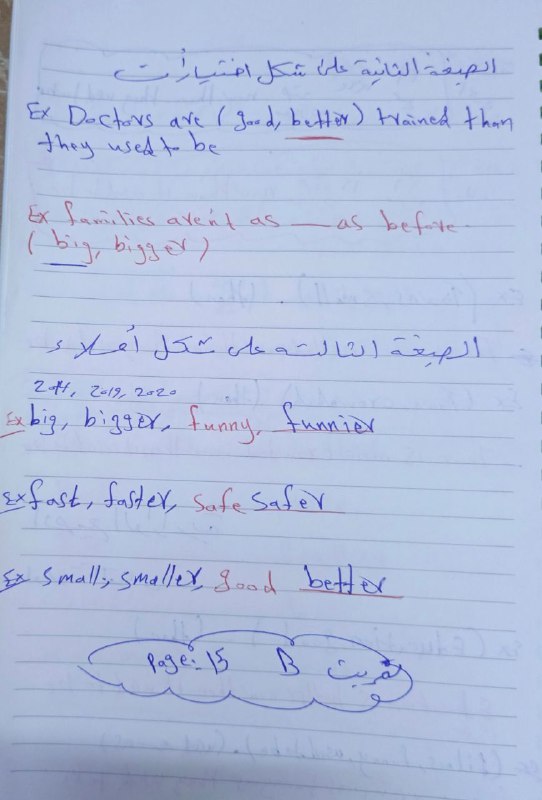 الصيغة الثانية على شكل اختيارات
Ex Doctors are (good, better) trained than
they used to be
Ex families aren't as ___ as before.
(big, bigger)
الصيغة الثالثة على شكل أملاء
2011, 2019, 2020
Ex big, bigger, funny, funnier
Ex fast, faster, safe safer
Ex small, smaller, good better
Page: 15 B تمرين